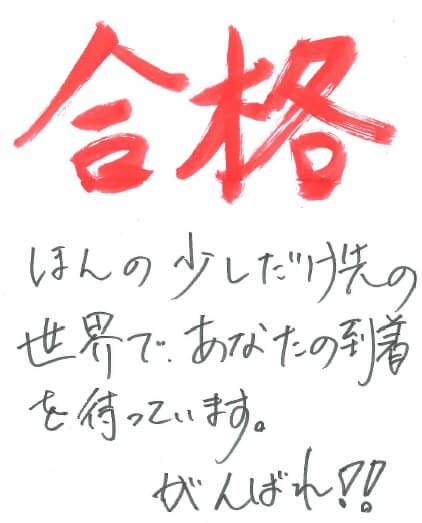 合格
ほんの少しだけ先の
世界で、あなたの到着
を待っています。
がんばれ!!